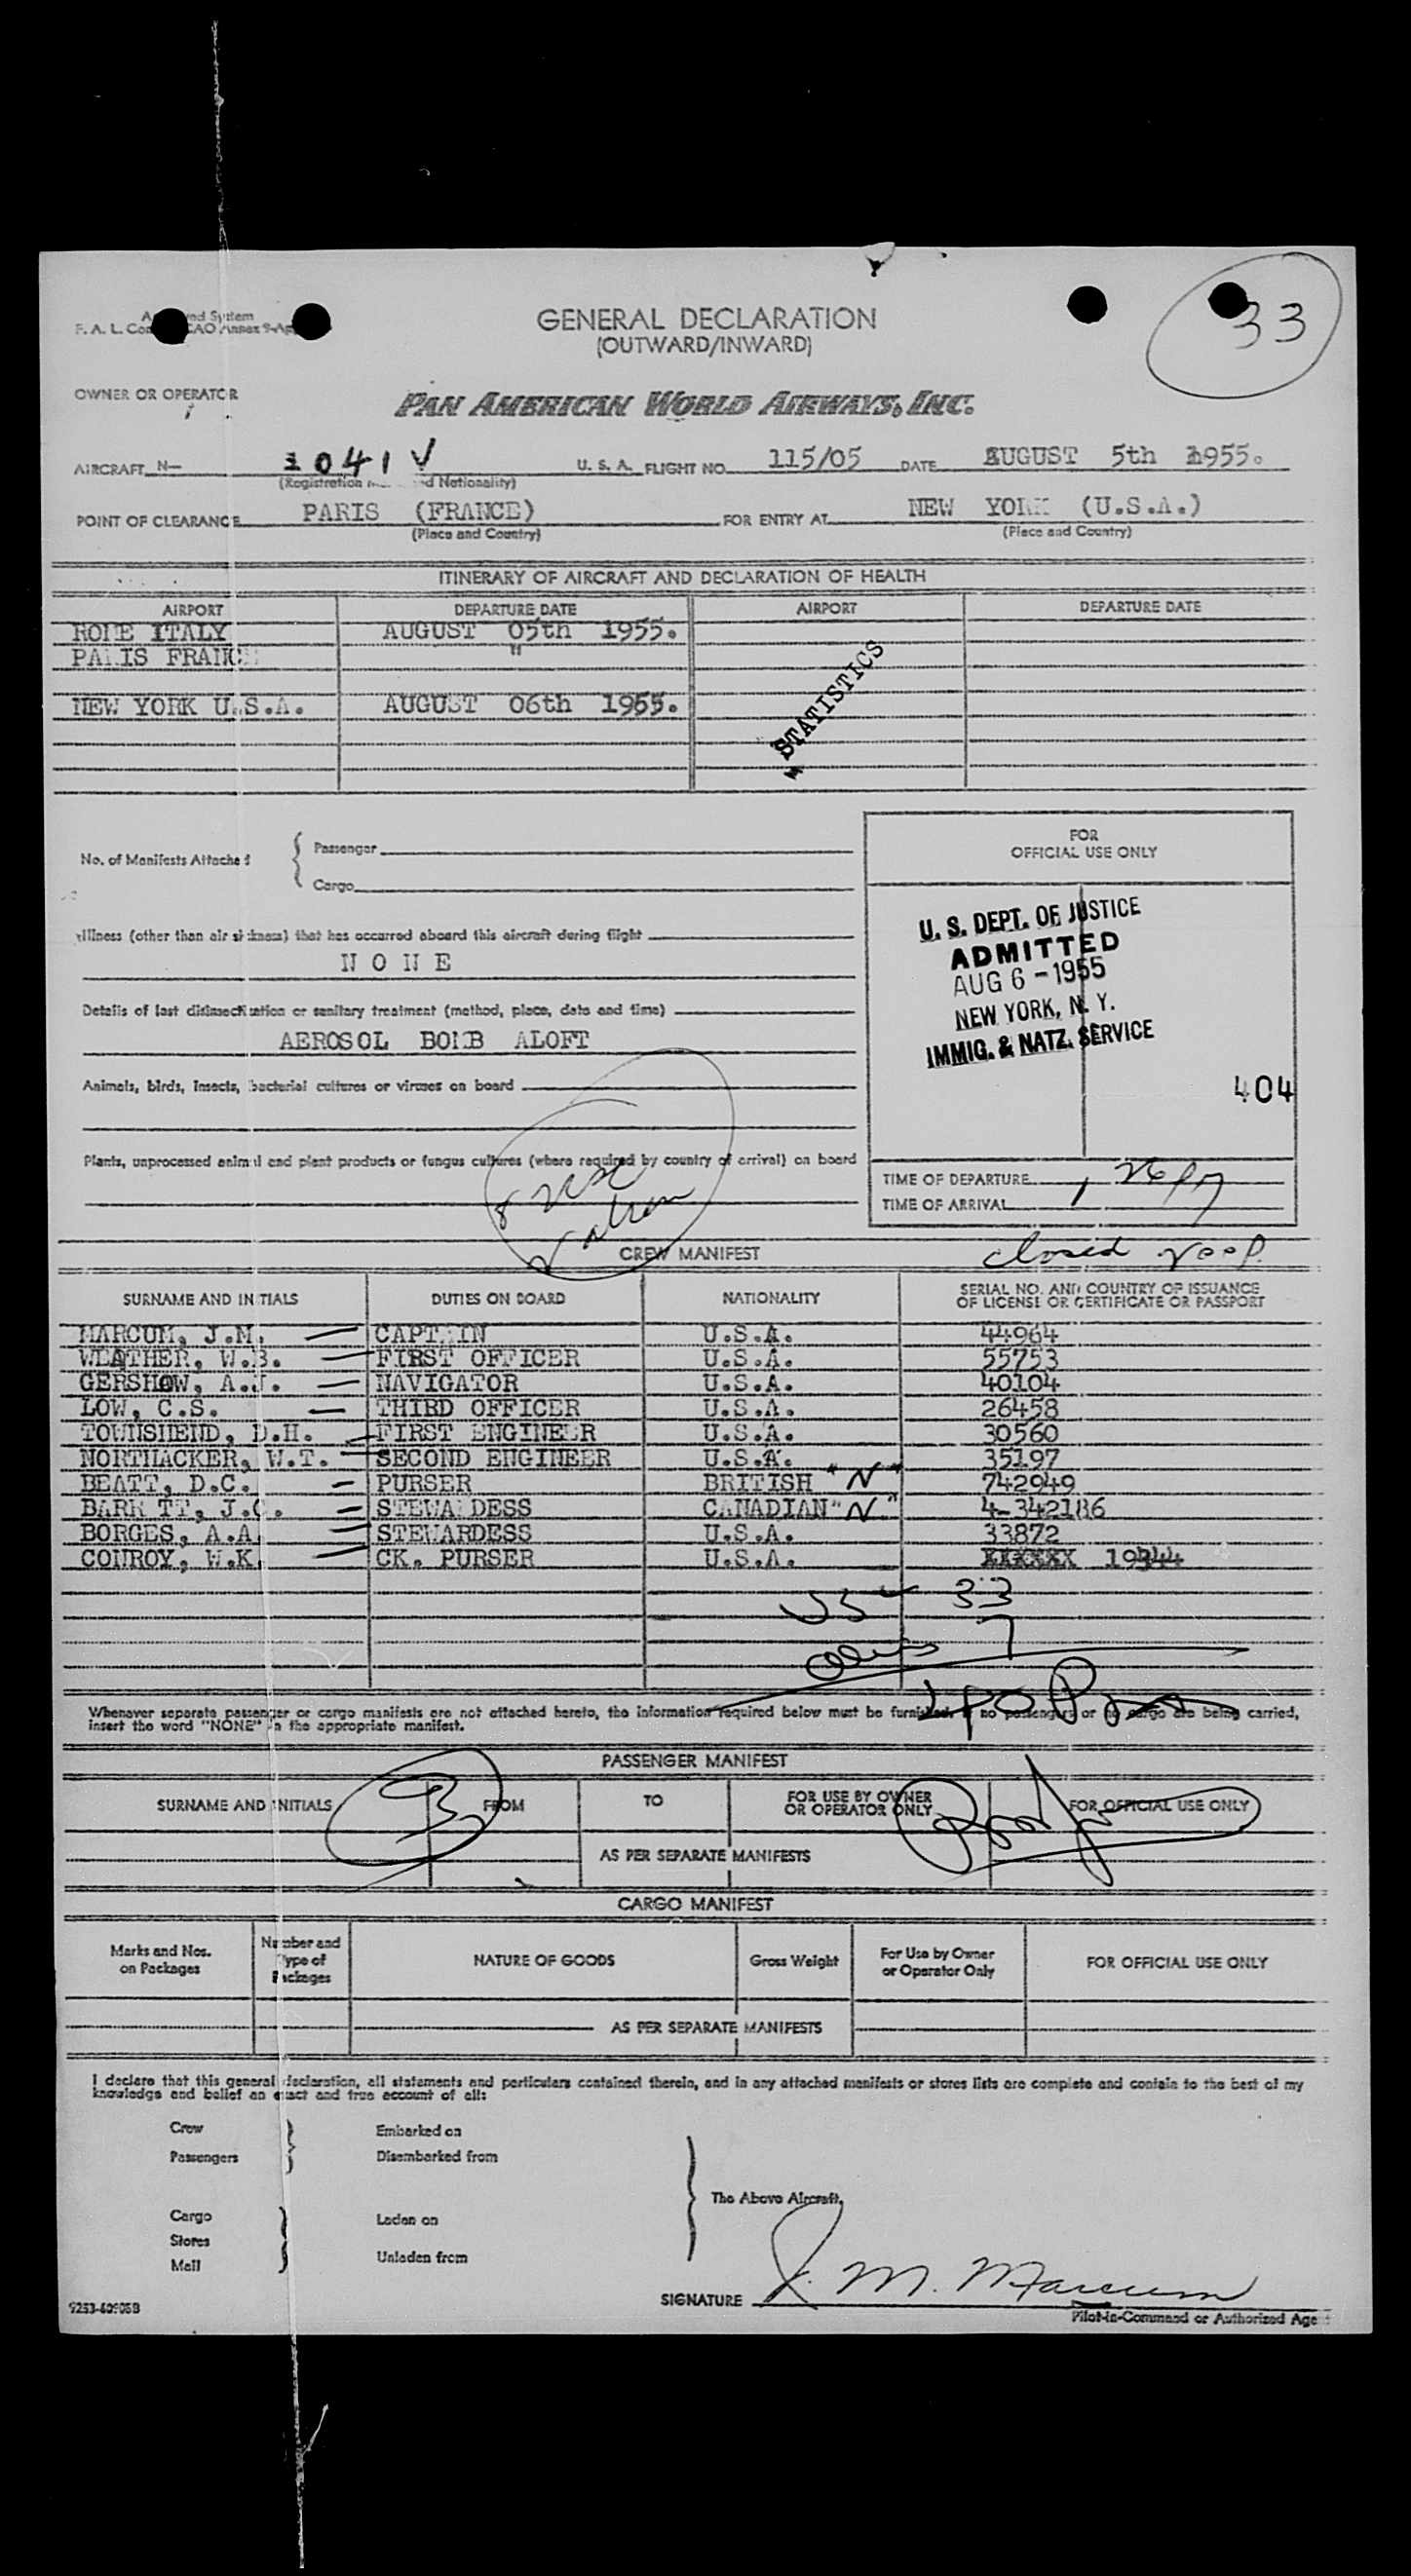 GENERAL DECLARATION
(OUTWARD/INWARD)
33
OWNER OR OPERATOR
PAN AMERICAN WORLD AIRWAYS, INC.
AIRCRAFT N- 1041V U. S. A. FLIGHT NO. 115/05 DATE AUGUST 5th 1955.
(Registration and Nationality)
POINT OF CLEARANCE PARIS (FRANCE) FOR ENTRY AT NEW YORK (U.S.A.)
(Place and Country) (Place and Country)
ITINERARY OF AIRCRAFT AND DECLARATION OF HEALTH
AIRPORT DEPARTURE DATE AIRPORT DEPARTURE DATE
ROME ITALY AUGUST 05th 1955.
PARIS FRANCE "
NEW YORK U.S.A. AUGUST 06th 1955.
STATISTICS
No. of Manifests Attached
Passenger
Cargo
FOR
OFFICIAL USE ONLY
U. S. DEPT. OF JUSTICE
ADMITTED
AUG 6 - 1955
NEW YORK, N. Y.
IMMIG. & NATZ. SERVICE
404
Illness (other than air sickness) that has occurred aboard this aircraft during flight
N O N E
Details of last disinsectization or sanitary treatment (method, place, date and time)
AEROSOL BOMB ALOFT
Animals, birds, insects, bacterial cultures or viruses on board
Plants, unprocessed animal and plant products or fungus cultures (where required by country of arrival) on board
TIME OF DEPARTURE
TIME OF ARRIVAL
closed
CREW MANIFEST
SURNAME AND INITIALS DUTIES ON BOARD NATIONALITY SERIAL NO. AND COUNTRY OF ISSUANCE
OF LICENSE OR CERTIFICATE OR PASSPORT
MARCUM, J.M. CAPTAIN U.S.A. 44964
WEATHER, W.B. FIRST OFFICER U.S.A. 55753
GERSHOW, A.J. NAVIGATOR U.S.A. 40104
LOW, C.S. THIRD OFFICER U.S.A. 26458
TOWNSHEND, D.H. FIRST ENGINEER U.S.A. 30560
NORTHACKER, W.T. SECOND ENGINEER U.S.A. 35197
BEATT, D.C. PURSER BRITISH "N" 742949
BARR TT, J.C. STEWARDESS CANADIAN "N" 4-342186
BORGES, A.A. STEWARDESS U.S.A. 33872
CONROY, W.K. CK. PURSER U.S.A. XXXXXX 19344
33
7
Whenever separate passenger or cargo manifests are not attached hereto, the information required below must be furnished. If no passengers or no cargo are being carried,
insert the word "NONE" in the appropriate manifest.
PASSENGER MANIFEST
SURNAME AND INITIALS FROM TO FOR USE BY OWNER
OR OPERATOR ONLY FOR OFFICIAL USE ONLY
AS PER SEPARATE MANIFESTS
CARGO MANIFEST
Marks and Nos.
on Packages Number and
Type of
Packages NATURE OF GOODS Gross Weight For Use by Owner
or Operator Only FOR OFFICIAL USE ONLY
AS PER SEPARATE MANIFESTS
I declare that this general declaration, all statements and particulars contained therein, and in any attached manifests or stores lists are complete and contain to the best of my
knowledge and belief an exact and true account of all:
Crew Embarked on
Passengers Disembarked from
The Above Aircraft.
Cargo Laden on
Stores
Mail Unladen from
SIGNATURE J. M. Marcum
Pilot-in-Command or Authorized Agent